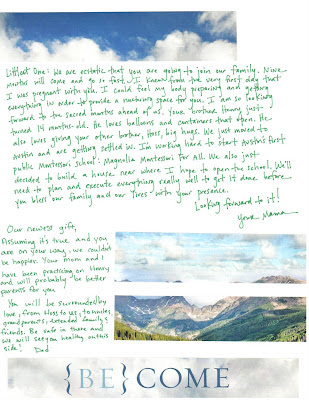 Littlest One: We are ecstatic that you are going to join our family. Nine
months will come and go so fast. I knew from the very first day that
I was pregnant with you. I could feel my body preparing and getting
everything in order to provide a nurturing space for you. I am so looking
forward to the sacred months ahead of us. Your brother Henry just
turned 14 months-old. He loves balloons and containers that open. He
also loves giving your other brother, Hoss, big hugs. We just moved to
Austin and are getting settled in. I'm working hard to start Austin's first
public Montessori school: Magnolia Montessori For All. We also just
decided to build a house near where I hope to open the school. We'll
need to plan and execute everything really well to get it done before
you bless our family and our lives with your presence.
Looking forward to it!
Your Mama
Our newest gift,
Assuming it's true and you
are on your way, we couldn't
be happier. Your mom and I
have been practicing on Henry
and will probably be better
parents for you
You will be surrounded by
love, from Hoss to us, to uncles,
grandparents, extended family &
friends. Be safe in there and
we will see you healthy on this
side! Dad
{BE}COME